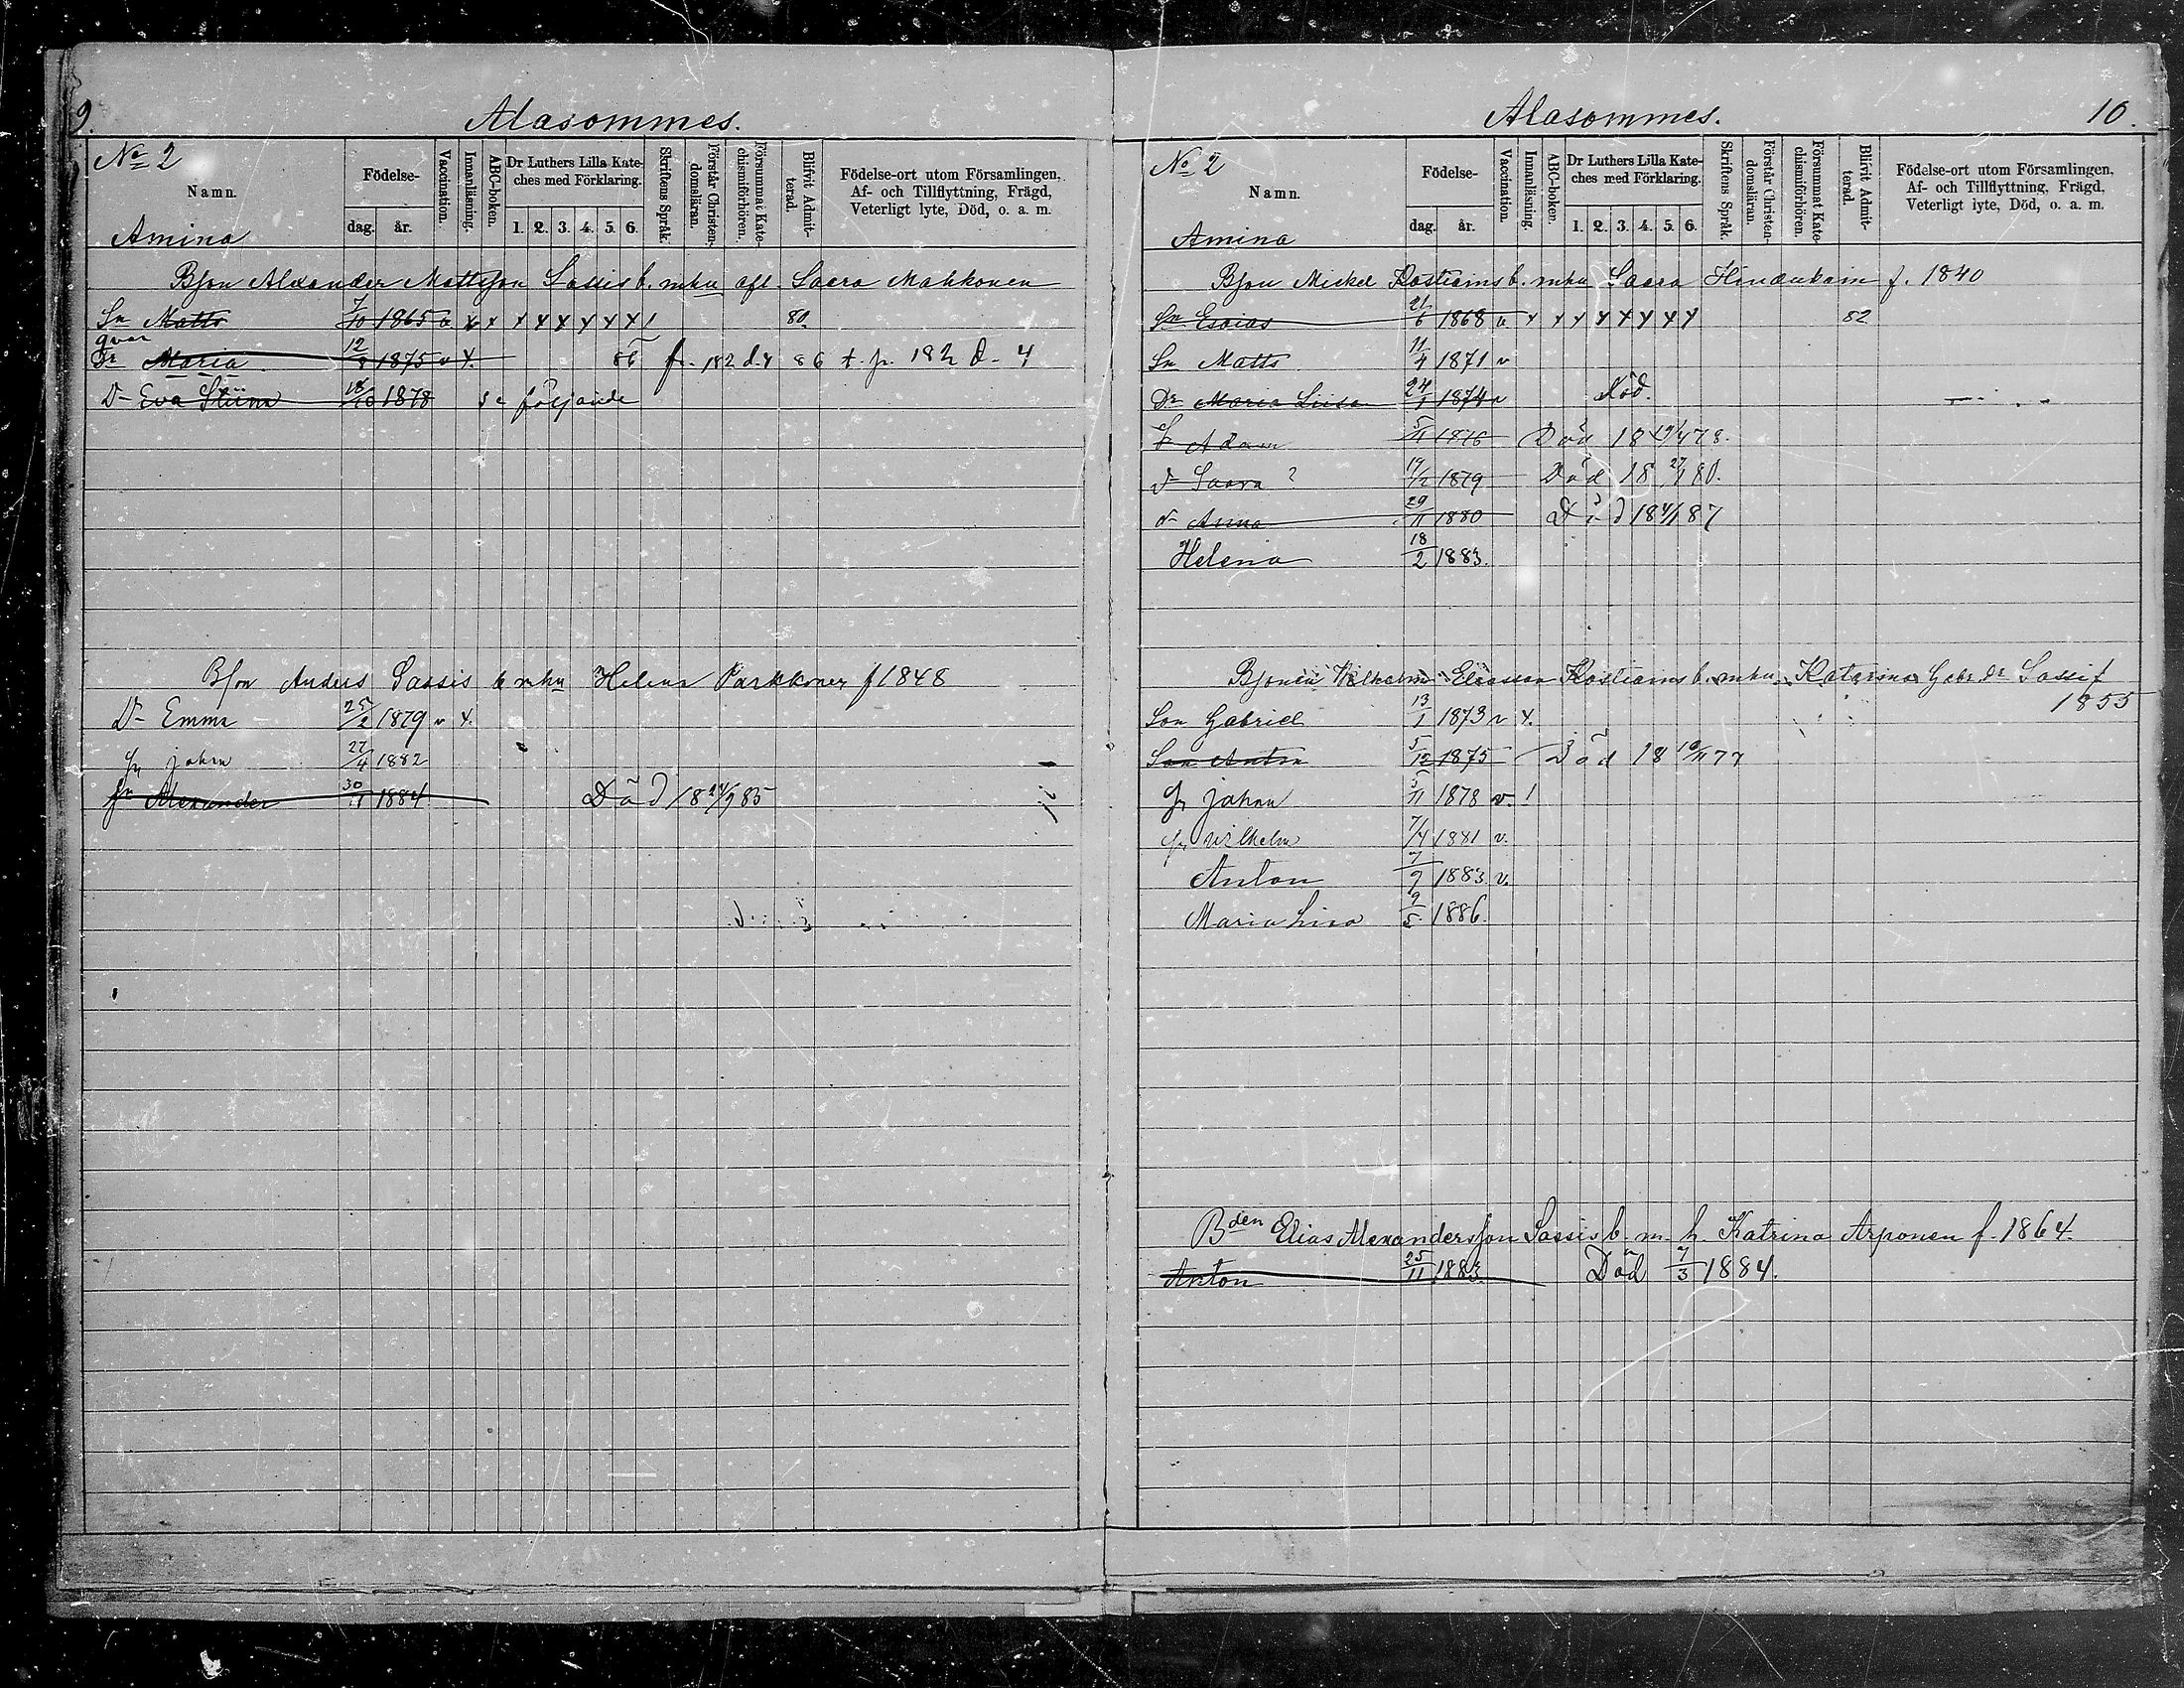 9.
Alasommes.
No 2
Namn.
Födelse-
dag. år.
Vaccination.
Innanläsning.
ABC-boken.
Dr Luthers Lilla Kate-
ches med Förklaring.
1. 2. 3. 4. 5. 6.
Skriftens Språk.
Förstår Christen-
domsläran.
Försummat Kate-
chismiförhören.
Blifvit Admit-
terad.
Födelse-ort utom Församlingen,
Af- och Tillflyttning, Frägd,
Veterligt lyte, Död, o. a. m.
Amina
Bson Alexander Mattsson Sassis b. mhu afl. Saara Mahkonen
Sn Matts 7/10 1865 80.
qvar
Dr Maria 12/8 1875 v x. fr. 182 d. 4 86 t. p. 182 d. 4
Dr Eva Stiina 1878 se följande
Bson Anders Sassis b mhu Helena Parkkonen f 1848
Dr Emma 25/2 1879 v x.
Sn Johan 27/4 1882
Sn Alexander 1884 Död 18 24/9 85
Alasommes.
10.
No 2
Namn.
Födelse-
dag. år.
Vaccination.
Innanläsning.
ABC-boken.
Dr Luthers Lilla Kate-
ches med Förklaring.
1. 2. 3. 4. 5. 6.
Skriftens Språk.
Förstår Christen-
domsläran.
Försummat Kate-
chismiförhören.
Blifvit Admit-
terad.
Födelse-ort utom Församlingen,
Af- och Tillflyttning, Frägd,
Veterligt lyte, Död, o. a. m.
Amina
Bson Mickel Kostiains b. mhu Saara f. 1840
Sn Esaias 21/6 1868 82
Sn Matts 11/4 1871 v
Dr Maria Liisa 24/1 1874 v Död.
Sn Adam 5/11 1876 Död 18 19/4 78.
Dr Saara 19/2 1879 Död 18 27/1 80.
Dr Anna 29/11 1880 Död 18 87
Helena 18/2 1883.
Bsonen Wilhelm Eliasson Kostiains b. mhu Katarina Gabr. Dr Sassi f
1855
Son Gabriel 13/1 1873 v x.
Son Anton 5/12 1875 Död 18 10/11 77
Sn Johan 5/11 1878 v. 1
Sn Wilhelm 7/4 1881 v.
Anton 7/9 1883 v.
Maria Lisa 9/5 1886.
Bden Elias Alexandersson Sassis b. m. h. Katrina Arponen f. 1864.
Anton 25/11 1883. Död 7/3 1884.